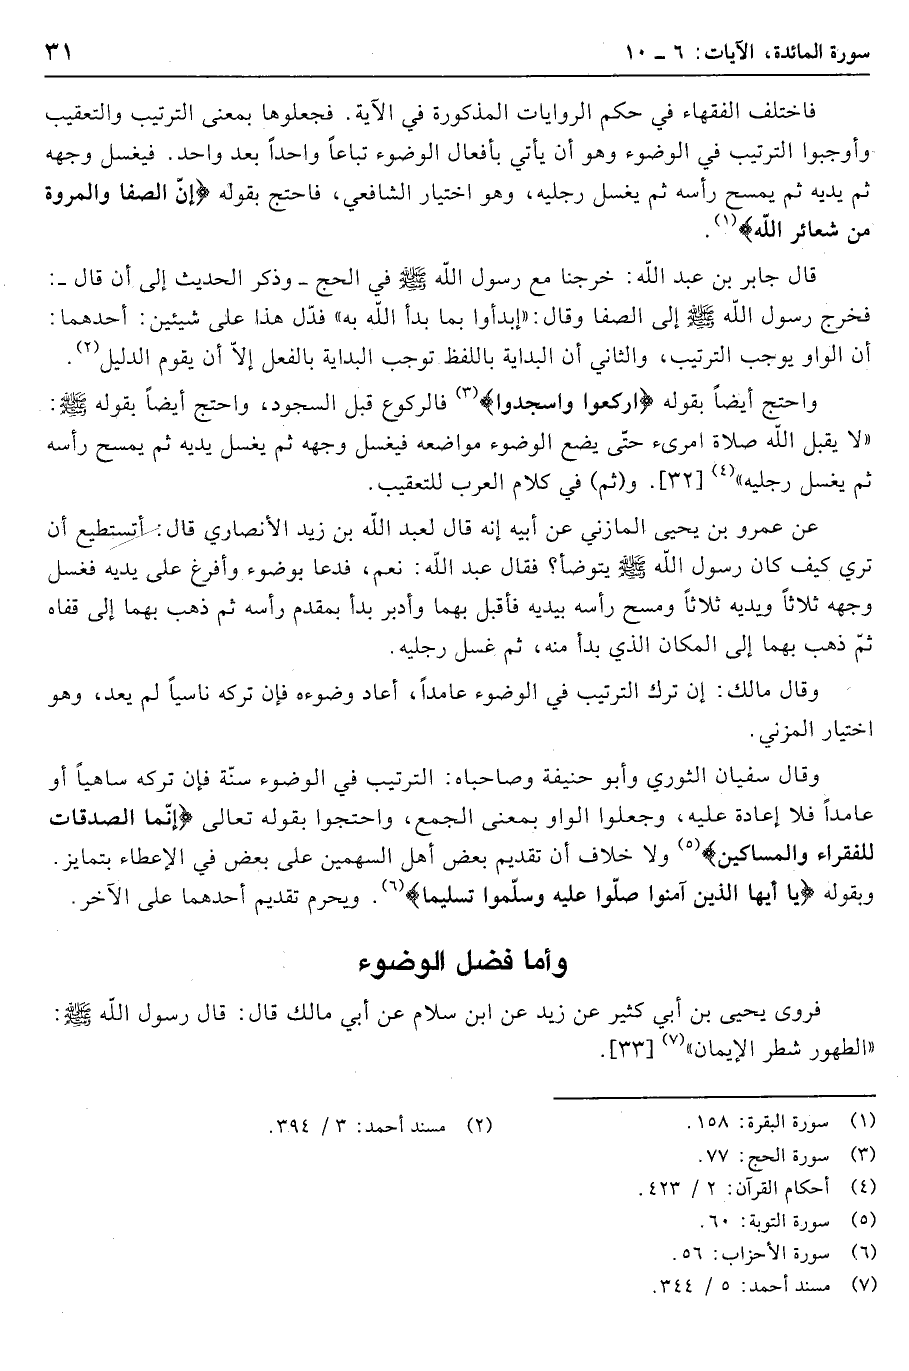 سورة المائدة، الآيات: ٦ ـ ١٠ ٣١
فاختلف الفقهاء في حكم الروايات المذكورة في الآية. فجعلوها بمعنى الترتيب والتعقيب
وأوجبوا الترتيب في الوضوء وهو أن يأتي بأفعال الوضوء تباعاً واحداً بعد واحد. فيغسل وجهه
ثم يديه ثم يمسح رأسه ثم يغسل رجليه، وهو اختيار الشافعي، فاحتج بقوله ﴿إنّ الصفا والمروة
من شعائر اللّه﴾(١).
قال جابر بن عبد اللّه: خرجنا مع رسول اللّه ﷺ في الحج ـ وذكر الحديث إلى أن قال ـ:
فخرج رسول اللّه ﷺ إلى الصفا وقال: «إبدأوا بما بدأ اللّه به» فدّل هذا على شيئين: أحدهما:
أن الواو يوجب الترتيب، والثاني أن البداية باللفظ توجب البداية بالفعل إلاّ أن يقوم الدليل(٢).
واحتج أيضاً بقوله ﴿اركعوا واسجدوا﴾(٣) فالركوع قبل السجود، واحتج أيضاً بقوله ﷺ:
«لا يقبل اللّه صلاة امرىء حتّى يضع الوضوء مواضعه فيغسل وجهه ثم يغسل يديه ثم يمسح رأسه
ثم يغسل رجليه»(٤) [٣٢]. و(ثم) في كلام العرب للتعقيب.
عن عمرو بن يحيى المازني عن أبيه إنه قال لعبد اللّه بن زيد الأنصاري قال: أتستطيع أن
تري كيف كان رسول اللّه ﷺ يتوضأ؟ فقال عبد اللّه: نعم، فدعا بوضوء وأفرغ على يديه فغسل
وجهه ثلاثاً ويديه ثلاثاً ومسح رأسه بيديه فأقبل بهما وأدبر بدأ بمقدم رأسه ثم ذهب بهما إلى قفاه
ثمّ ذهب بهما إلى المكان الذي بدأ منه، ثم غسل رجليه.
وقال مالك: إن ترك الترتيب في الوضوء عامداً، أعاد وضوءه فإن تركه ناسياً لم يعد، وهو
اختيار المزني.
وقال سفيان الثوري وأبو حنيفة وصاحباه: الترتيب في الوضوء سنّة فإن تركه ساهياً أو
عامداً فلا إعادة عليه، وجعلوا الواو بمعنى الجمع، واحتجوا بقوله تعالى ﴿إنّما الصدقات
للفقراء والمساكين﴾(٥) ولا خلاف أن تقديم بعض أهل السهمين على بعض في الإعطاء بتمايز.
وبقوله ﴿يا أيها الذين آمنوا صلّوا عليه وسلّموا تسليما﴾(٦). ويحرم تقديم أحدهما على الآخر.
وأما فضل الوضوء
فروى يحيى بن أبي كثير عن زيد عن ابن سلام عن أبي مالك قال: قال رسول اللّه ﷺ:
«الطهور شطر الإيمان»(٧) [٣٣].
(١) سورة البقرة: ١٥٨. (٢) مسند أحمد: ٣ / ٣٩٤.
(٣) سورة الحج: ٧٧.
(٤) أحكام القرآن: ٢ / ٤٢٣.
(٥) سورة التوبة: ٦٠.
(٦) سورة الأحزاب: ٥٦.
(٧) مسند أحمد: ٥ / ٣٤٤.